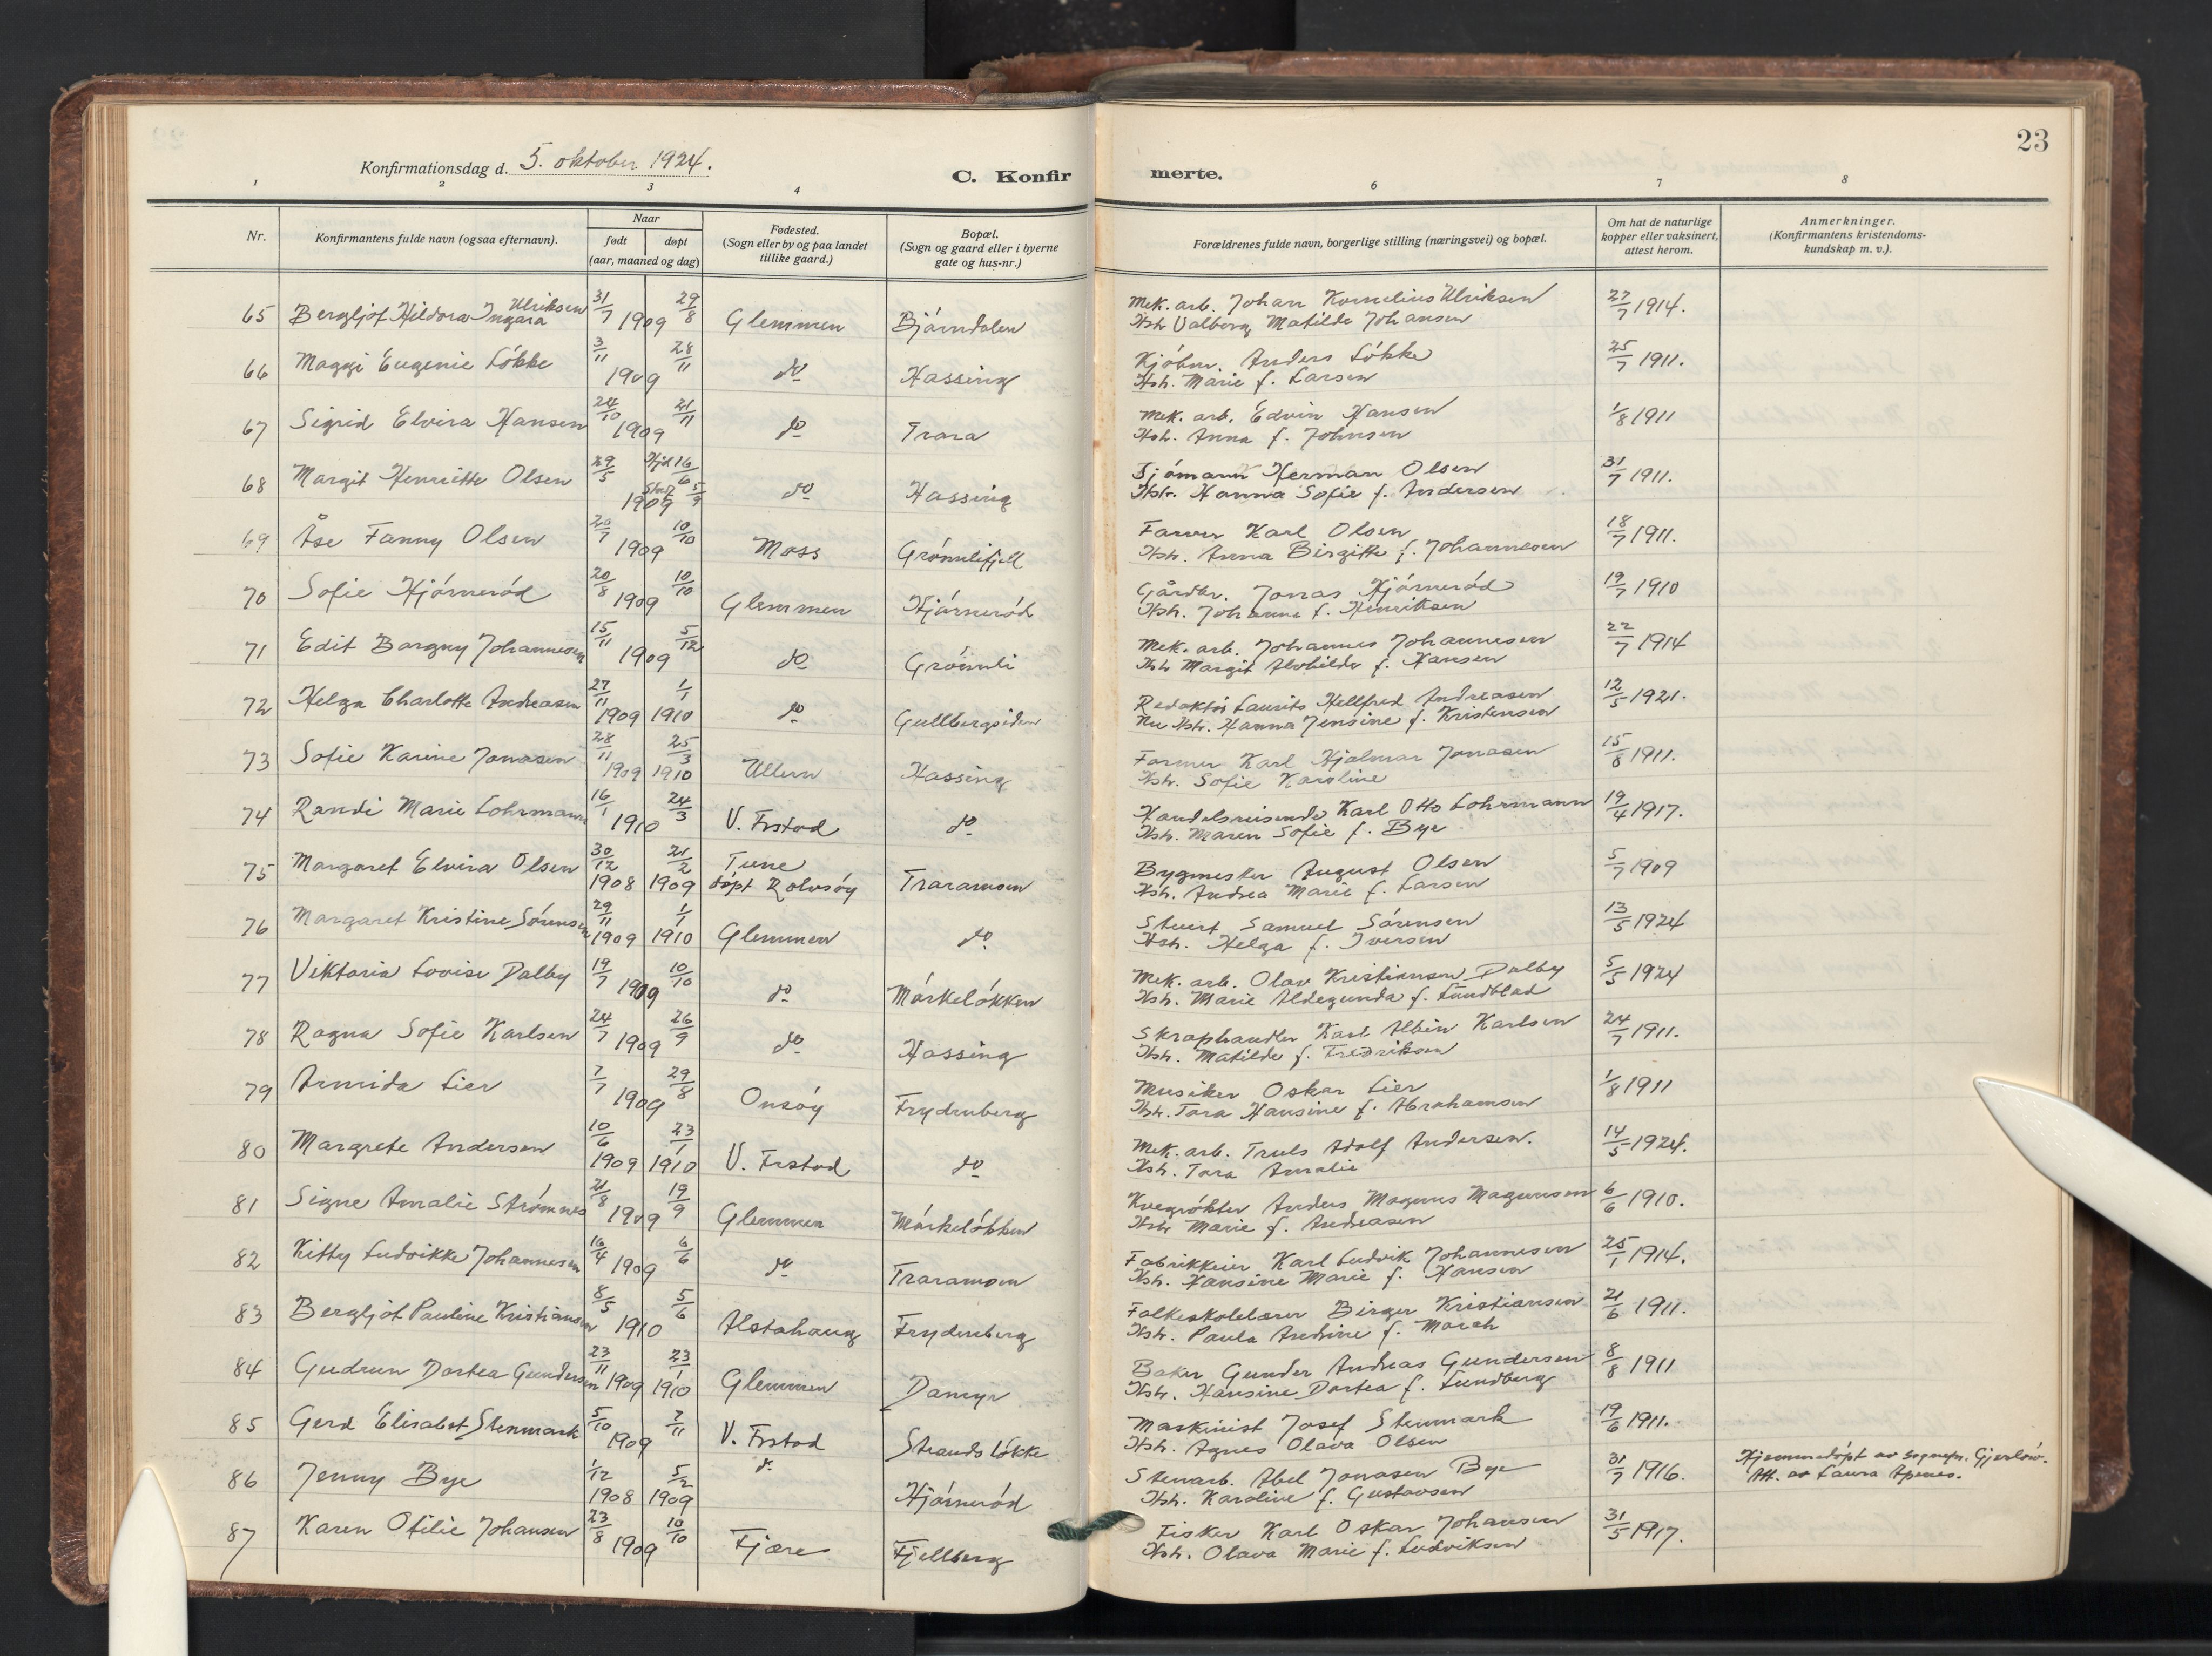 23
Konfirmationsdag d. 5. oktober 1924.
C. Konfirmerte.
1 2 3 4 6 7 8
Nr. Konfirmantens fulde navn (ogsaa efternavn). Naar født døpt (aar, maaned og dag) Fødested. (Sogn eller by og paa landet tillike gaard.) Bopæl. (Sogn og gaard eller i byerne gate og hus-nr.) Forældrenes fulde navn, borgerlige stilling (næringsvei) og bopæl. Om hat de naturlige kopper eller vaksinert, attest herom. Anmerkninger. (Konfirmantens kristendoms-kundskap m. v.).
65 Bergljot Hildora Ingara Ulriksen 31/7 1909 29/8 Glemmen Bjørndalen Mek. arb. Johan Kornelius Ulriksen 27/7 1914.
Hstr Valborg Matilde Johansen
66 Maggi Eugenie Løkke 3/11 1909 28/11 do Hassing Kjøbm. Anders Løkke 25/7 1911.
Hstr. Marie f. Larsen
67 Sigrid Elvira Hansen 24/10 1909 21/11 do Trara Mek. arb. Edvin Hansen 1/8 1911
Hstr. Anna f. Johnsen
68 Margit Henriette Olsen 29/5 1909 Hjd 16/6 Stadf 5/9 do Hassing Sjømann Herman Olsen 31/7 1911.
Hstr. Hanna Sofie f. Andersen
69 Åse Fanny Olsen 20/7 1909 10/10 Moss Grønlifjell Farver Karl Olsen 18/7 1911.
Hstr. Anna Birgitte f. Johannesen
70 Sofie Hjørnerød 20/8 1909 10/10 Glemmen Hjørnerød Gårdbr. Jonas Hjørnerød 19/7 1910
Hstr. Johanne f. Henriksen
71 Edit Borgny Johannesen 15/11 1909 5/12 do Grønli Mek. arb. Johannes Johannesen 22/7 1914
Hstr Margit Alvhilde f. Hansen
72 Helga Charlotte Andreasen 27/11 1909 1/1 1910 do Gullbergsiden Redaktør Laurits Hellfred Andreasen 12/5 1921.
Nu Hstr. Hanna Jensine f. Kristensen
73 Sofie Karine Jonasen 28/11 1909 25/3 1910 Ullern Hassing Former Karl Hjalmar Jonasen 15/8 1911.
Hstr. Sofie Karoline
74 Randi Marie Lohrmann 16/1 1910 24/3 V. Frstad do Handelsreisende Karl Otto Lohrmann 19/4 1917.
Hstr. Maren Sofie f. Bye
75 Margaret Elvira Olsen 30/12 1908 21/2 1909 Tune døpt Rolvsøy Traramoen Bygmester August Olsen 5/7 1909
Hstr. Andrea Marie f. Larsen
76 Margaret Kristine Sørensen 29/11 1909 1/1 1910 Glemmen do Stuert Samuel Sørensen 13/5 1924
Hstr. Helga f. Iversen
77 Viktoria Lovise Dalby 19/7 1909 10/10 do Mørkeløkken Mek. arb. Olav Kristiansen Dalby 5/5 1924
Hstr. Marie Aldegunda f. Lundblad
78 Ragna Sofie Karlsen 24/7 1909 26/9 do Hassing Skraphandler Karl Albin Karlsen 24/7 1911.
Hstr. Matilde f. Fredriksen
79 Armida Lier 7/7 1909 29/8 Onsøy Frydenberg Musiker Oskar Lier 1/8 1911
Hstr. Tora Hansine f. Abrahamsen
80 Margrete Andersen 10/6 1909 23/1 1910 V. Frstad do Mek. arb. Truls Adolf Andersen. 14/5 1924.
Hstr. Tora Amalie
81 Signe Amalie Strømnes 21/8 1909 19/9 Glemmen Mørkeløkken Kvegrøkter Anders Magnus Magnussen 6/6 1910.
Hstr Marie f. Andreasen
82 Kitty Ludvikke Johannesen 16/4 1909 6/6 do Traramoen Fabrikkeier Karl Ludvik Johannesen 25/1 1914.
Hstr. Hansine Marie f. Hansen
83 Bergljot Pauline Kristiansen 8/5 1910 5/6 Alstahaug Frydenberg Folkeskolelærer Birger Kristiansen 21/6 1911.
Hstr. Paula Andrine f. Morch
84 Gudrun Dortea Gundersen 23/11 1909 23/1 1910 Glemmen Damyr Baker Gunder Andreas Gundersen 8/8 1911
Hstr. Hansine Dortea f. Lundberg
85 Gerd Elisabet Stenmark 5/10 1909 7/11 V. Frstad Strands Løkke Maskinist Josef Stenmark 19/6 1911.
Hstr. Agnes Olava Olsen
86 Jenny Bye 1/12 1908 5/2 1909 do Hjørnerød Stenarb. Abel Jonasen Bye 31/7 1916. Hjemmedøpt av sognepr. Gjerløw.
Hstr. Karoline f. Gustavsen Att. av Laura Apenes.
87 Karen Otilie Johansen 23/8 1909 10/10 Fjære Fjellberg Fisker Karl Oskar Johansen 31/5 1917.
Hstr. Olava Marie f. Ludviksen